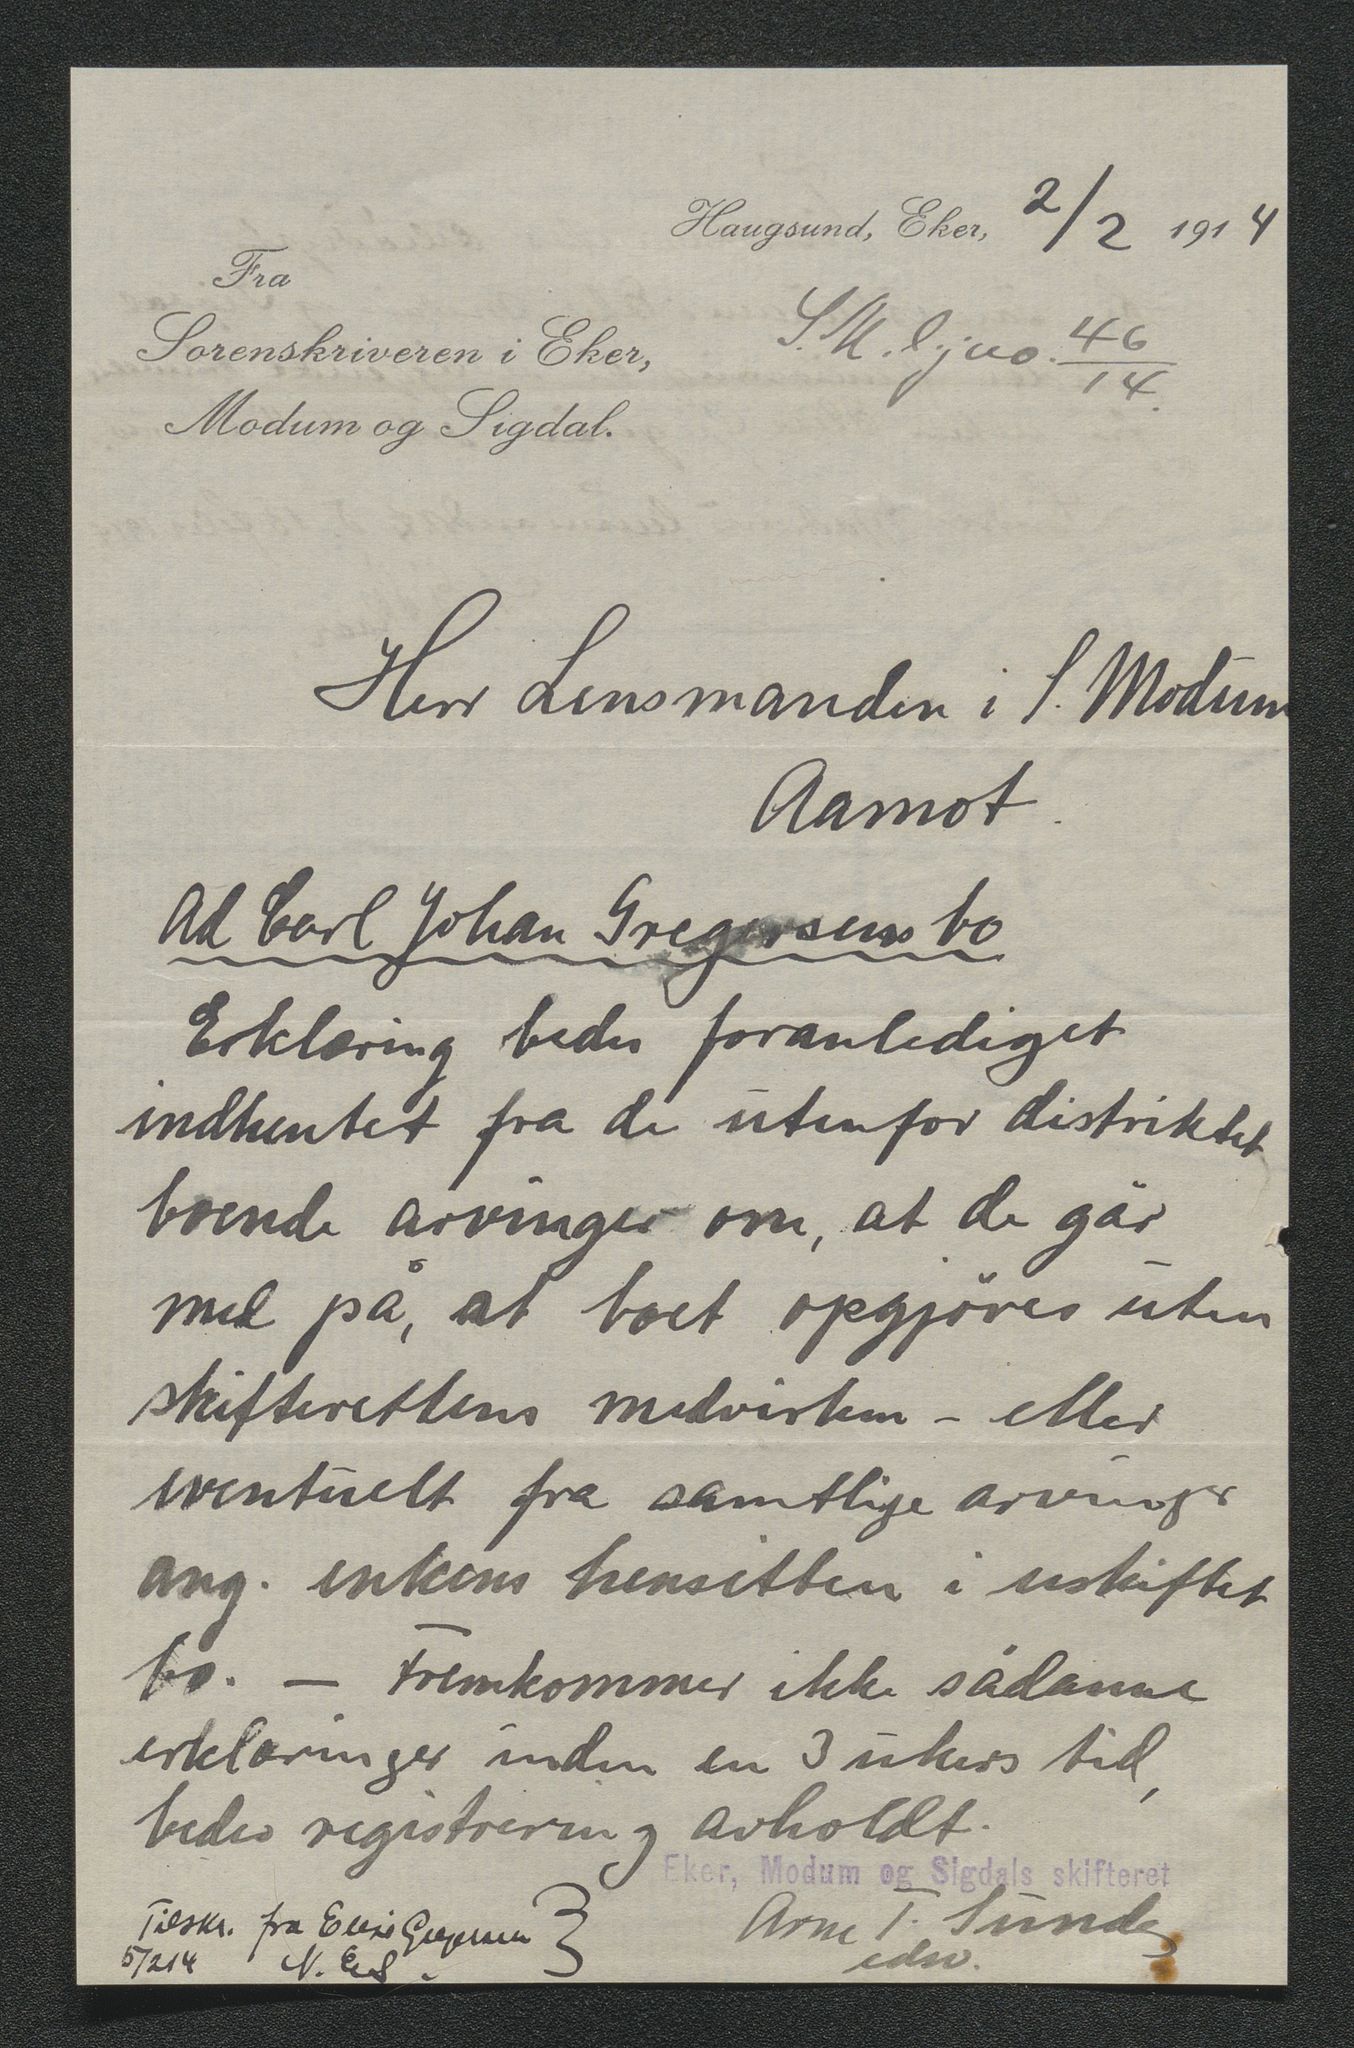 Haugsund, Eker, 2/2 1914
Fra
Sorenskriveren i Eker,
Modum og Sigdal.
S.M. l. jno. 46/14.
Herr Lensmanden i S. Modum
Aamot.
Ad Carl Johan Gregersens bo
Erklæring bedes foranlediget
indhentet fra de utenfor distriktet
boende arvinger om, at de går
med på, at boet opgjöres uten
skifterettens medvirken - eller
eventuelt fra samtlige arvinger
ang. enkens hensitten i uskiftet
bo. — Fremkommer ikke sådanne
erklæringer inden en 3 ukers tid,
bedes registrering avholdt.
Eker, Modum og Sigdals skifteret
Arne T. Sunde
edsv.
Tilskr. fra Gregersen
5/2 14